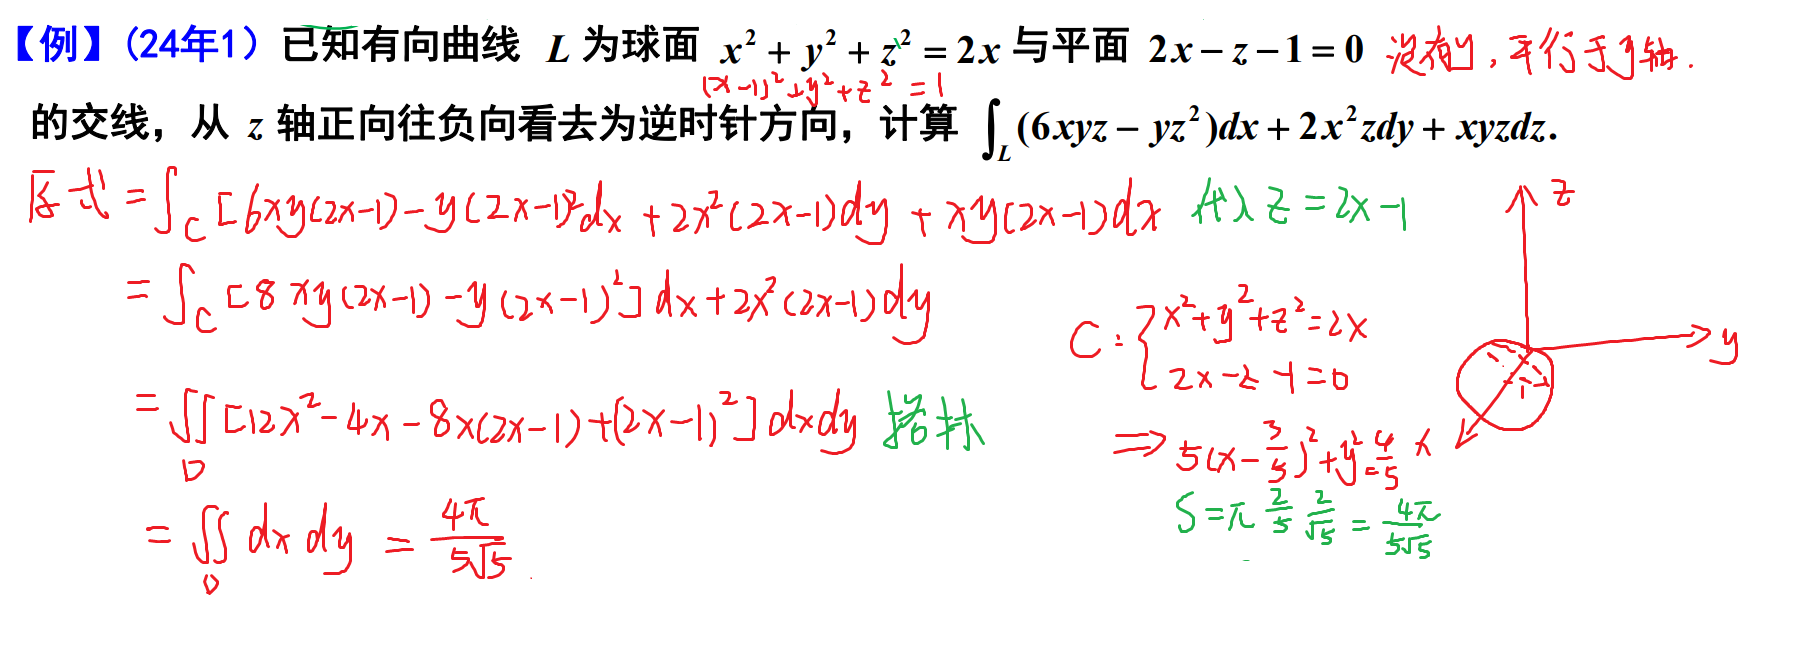 【例】(24年1) 已知有向曲线 L 为球面 x² + y² + z² = 2x 与平面 2x − z − 1 = 0 没有y，平行于y轴.
(x−1)²+y²+z² = 1
的交线，从 z 轴正向往负向看去为逆时针方向，计算 ∫_L (6xyz − yz²)dx + 2x²zdy + xyzdz.
原式 = ∫_C [6xy(2x−1) − y(2x−1)²dx + 2x²(2x−1)dy + xy(2x−1)dx 代入 z = 2x−1
= ∫_C [8xy(2x−1) − y(2x−1)²]dx + 2x²(2x−1)dy
= ∬_D [12x² − 4x − 8x(2x−1) + (2x−1)²]dxdy 格林
= ∬_D dxdy = 4π/5√5
C: { x²+y²+z²=2x
2x−z−1=0
⇒ 5(x−3/5)²+y²=4/5
S = π 2/5 2/√5 = 4π/5√5
z
y
x